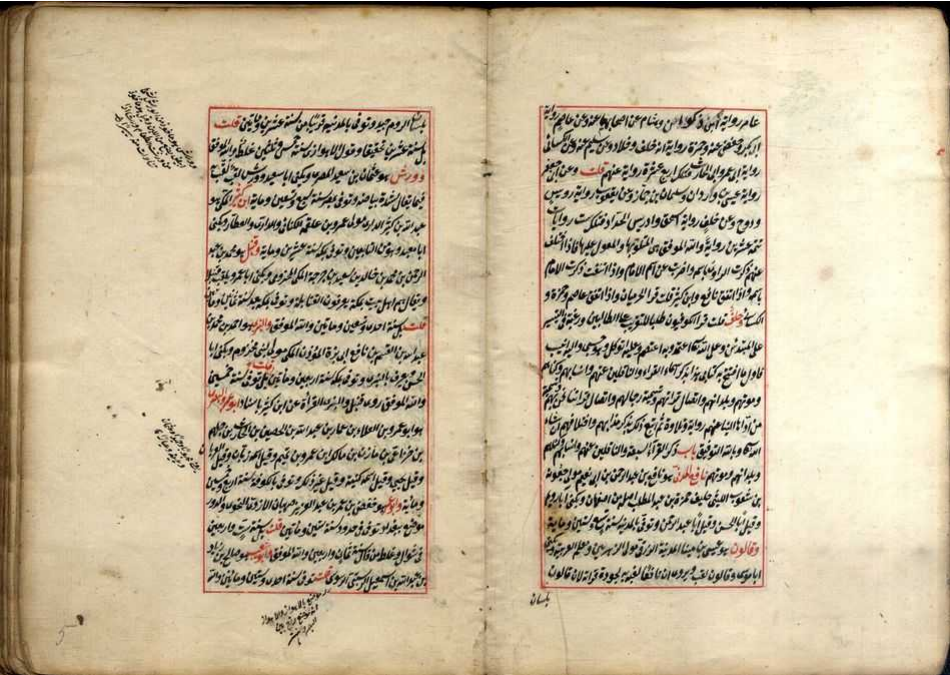 عامر رواية ابن ذكوان وهشام عن اصحابهما عنه وعن عاصم رواية
ابي بكر وحفص عنه وحمزة رواية خلف وخلاد عن سليم عنه وعن الكسائي
رواية ابي عمرو وابي الحارث فتلك اربع عشرة رواية عنهم قلت وعن ابي جعفر
رواية عيسى بن وردان وسليمان بن جماز وعن يعقوب رواية رويس
وروح وعن خلف رواية اسحق وادريس الحداد فتلك ست روايات
تتمة عشرين رواية والله الموفق هي المتلوة بها والمعول عليها فاذا اختلف
عنهم ذكرت الراوي باسمه واضربت عن اسم الامام واذا اتفقت ذكرت الامام
باسمه فاذا اتفق نافع وابن كثير قلت قرا الحرميان واذا اتفق عاصم وحمزة و
الكسائي وخلف قلت قرا الكوفيون طلبا للتقريب على الطالبين ورغبة في التيسير
على المبتدئين وعلى الله تعالى اعتمد وبه اعتصم وعليه اتوكل وهو حسبي واليه انيب
فاول ما افتتح به كتابي هذا بذكر اسماء القراء والناقلين عنهم وانسابهم وكناهم
وموتهم وبلدانهم واتصال قراتهم وتسمية رجالهم واتصال قراتنا نحن بهم وتسمية
من اداها الينا عنهم رواية وتلاوة ثم اتبع ذلك بذكر مذاهبهم واختلافهم ان شاء
الله تعالى وبالله التوفيق باب ذكر القراء السبعة والناقلين عنهم وانسابهم وكناهم
وبلدانهم وموتهم نافع المدني هو نافع بن عبد الرحمن بن ابي نعيم مولى جعونة
بن شعوب الليثي حليف حمزة بن عبد المطلب اصله من اصفهان ويكنى ابا رويم
وقيل ابا الحسن وقيل ابا عبد الرحمن وتوفي بالمدينة سنة تسع وستين وماية
وقالون هو عيسى بن مينا المدني الزرقي مولى الزهريين ومعلم العربية ويكنى
ابا موسى وقالون لقب ويروى ان نافعا لقبه به لجودة قراته لان قالون
بلسان
بلسان الروم جيد وتوفي بالمدينة قريبا من سنة عشرين وماتين قلت
بل سنة عشرين تحقيقا وقول الاهوازي سنة خمس وثلثين غلط والله الموفق
وورش هو عثمان بن سعيد المصري ويكنى ابا سعيد وورش لقب لقب به
فيما يقال لشدة بياضه وتوفي بمصر سنة سبع وتسعين وماية ابن كثير المكي هو
عبد الله بن كثير الداري مولى عمرو بن علقمة الكناني والداري العطار ويكنى
ابا معبد وهو من التابعين وتوفي بمكة سنة عشرين وماية وقنبل هو محمد بن عبد
الرحمن بن محمد بن خالد بن سعيد بن جرجة المكي المخزومي ويكنى ابا عمر ويلقب قنبلا
ويقال هم اهل بيت بمكة يعرفون القنابلة وتوفي بمكة بعد سنة ثمانين وماتين
قلت سنة احدى وتسعين وماتين والله الموفق والبزي هو احمد بن محمد بن
عبد الله بن القسم بن نافع بن ابي بزة المؤذن المكي مولى لبني مخزوم ويكنى ابا
الحسن ويعرف بالبزي وتوفي بمكة سنة اربعين وماتين قلت بل توفي سنة خمسين
والله الموفق روى قنبل والبزي القراة عن ابن كثير باسناد ابو عمرو البصري
هو ابو عمرو بن العلاء بن عمار بن عبد الله بن الحصين بن الحارث بن جلهم
بن خزاعي بن مازن بن مالك بن عمرو بن تميم وقيل اسمه زبان وقيل العريان
وقيل يحيى وقيل اسمه كنيته وقيل غير ذلك وتوفي بالكوفة سنة اربع وخمسين
وماية وابو عمر هو حفص بن عمر بن عبد العزيز بن صهبان الازدي النحوي والدور
موضع ببغداد وتوفي في حدود سنة خمسين وماتين قلت سنة ست واربعين
في شوال وغلط من قال سنة ثمان واربعين والله الموفق وابو شعيب هو صالح بن زياد
بن عبد الله بن اسمعيل الرستبي السوسي قلت توفي سنة احدى وستين وماتين والله